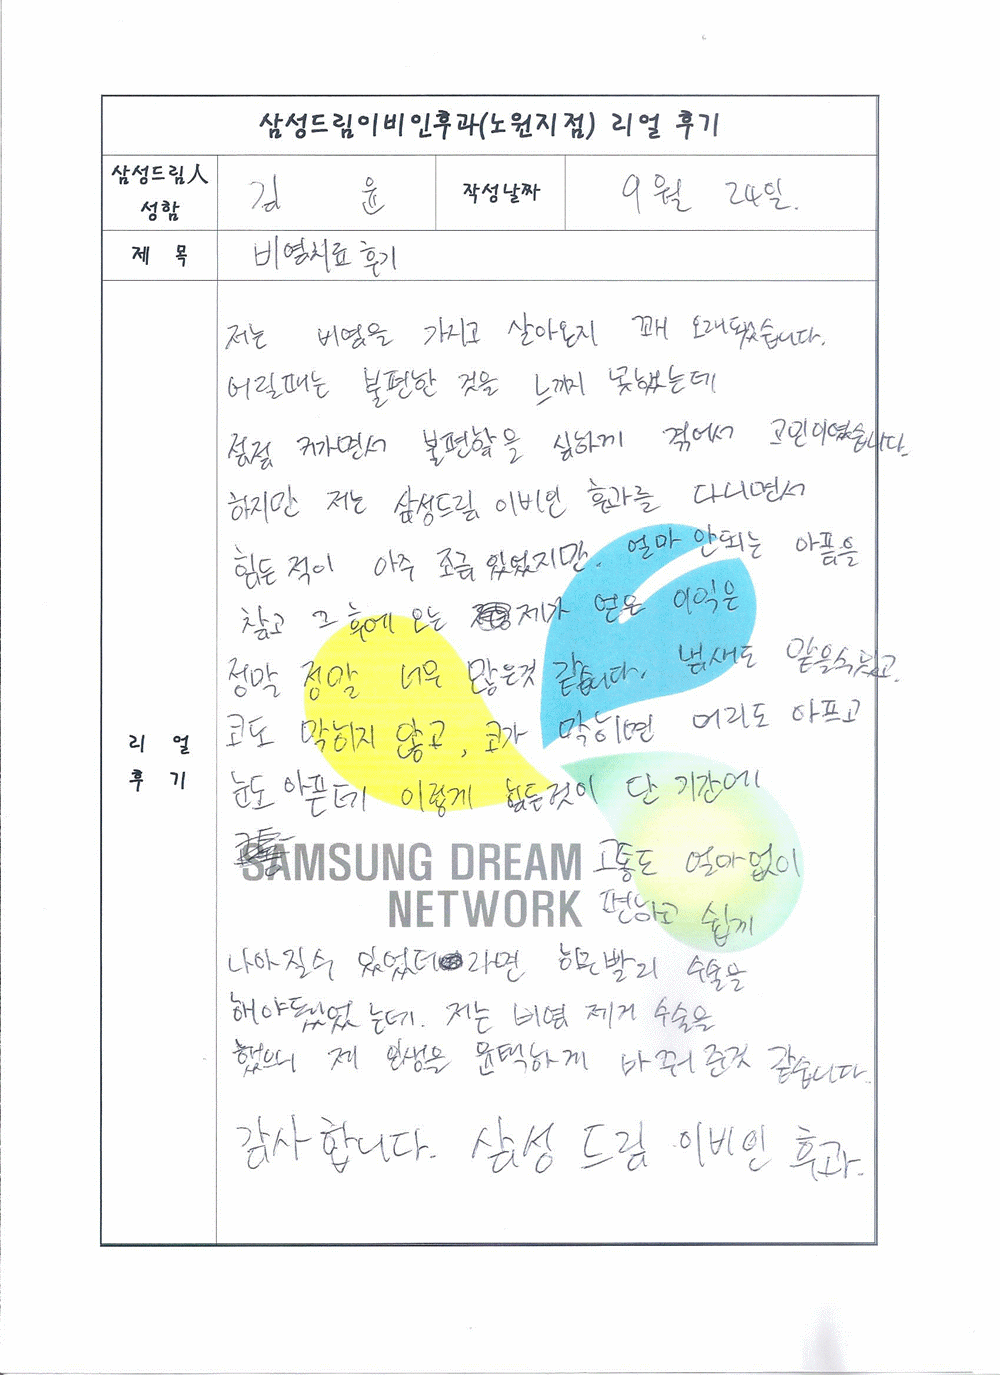 삼성드림이비인후과(노원지점) 리얼 후기
삼성드림人 성함
김 윤
작성날짜
9월 24일.
제 목
비염치료 후기
리 얼 후 기
저는 비염을 가지고 살아온지 꽤 오래됐었습니다.
어릴때는 불편한 것을 느끼지 못했는데
점점 커가면서 불편함을 심하게 겪어서 고민이였습니다.
하지만 저는 삼성드림 이비인 후과를 다니면서
힘든적이 아주 조금 있었지만. 얼마 안되는 아픔을
참고 그 후에 오는 제가 얻은 이익은
정말 정말 너무 많은것 같습니다. 냄새도 맡을수있고.
코도 막히지 않고, 코가 막히면 머리도 아프고
눈도 아픈데 이렇게 힘든것이 단 기간에
고통도 얼마없이
편하고 쉽게
SAMSUNG DREAM
NETWORK
나아질수 있었더라면 빨리 수술을
해야됐었는데. 저는 비염 제거 수술을
했으니 제 인생을 윤택하게 바꿔준것 같습니다.
감사합니다. 삼성 드림 이비인 후과.